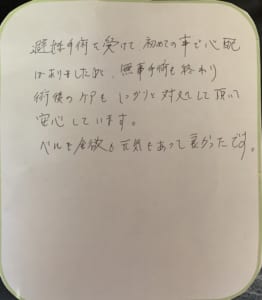 避妊手術を受けて初めての事で心配
はありましたが、無事手術も終わり
術後のケアもしっかりと対処して頂いて
安心しています。
ベルも食欲も元気もあって良かったです。